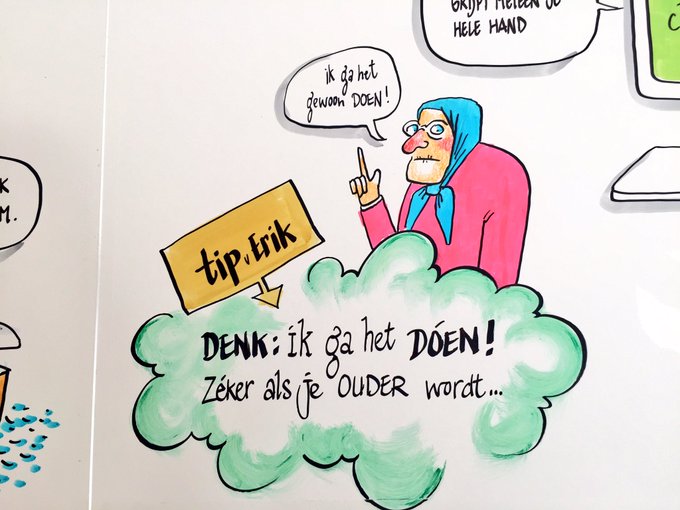 GRIJPT METEEN JE
HELE HAND
ik ga het
gewoon DOEN!
K
M.
tip v Erik
DENK: ík ga het DÓEN!
Zéker als je OUDER wordt...